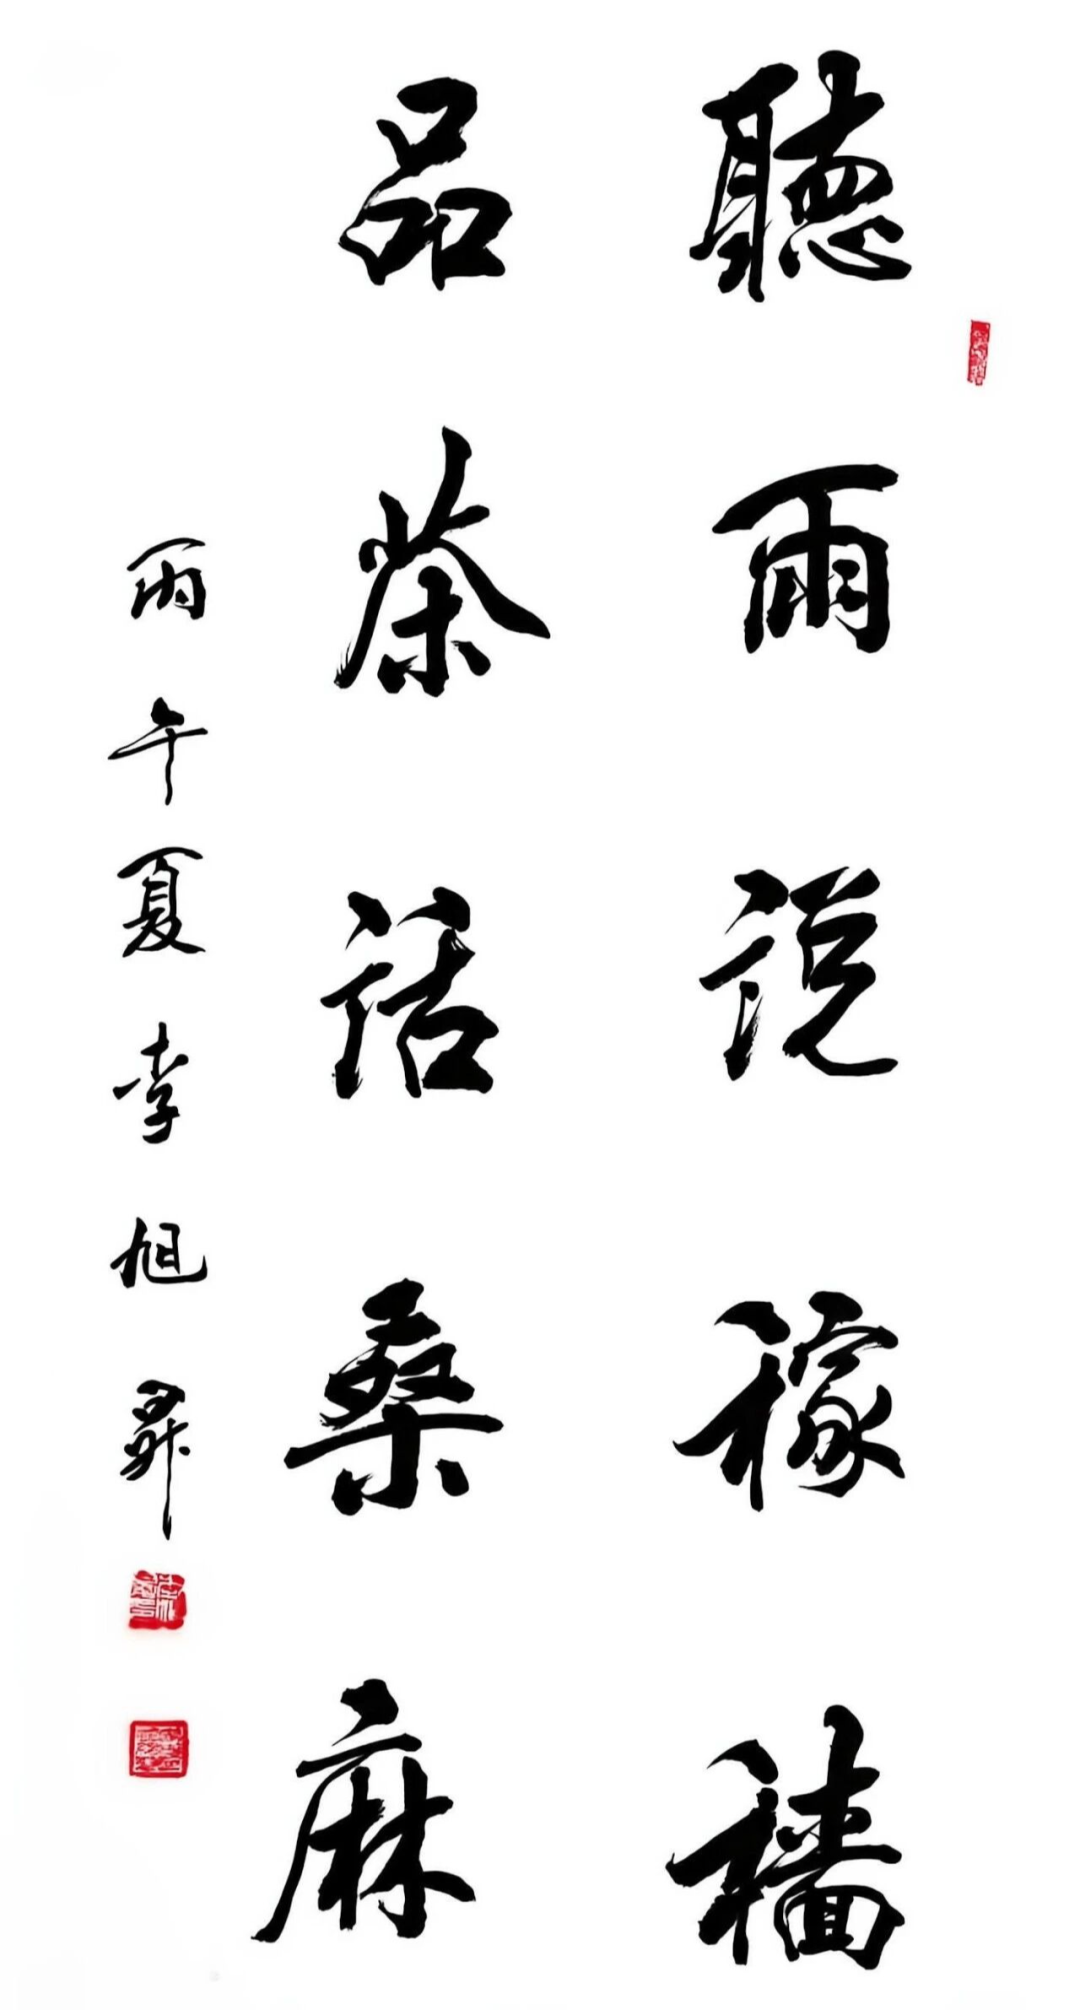 聽雨說稼穡
品茶話桑麻
丙午夏李旭昇